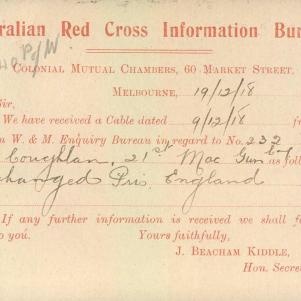 ralian Red Cross Information Bu
P/W
Colonial Mutual Chambers, 60 Market Street,
Melbourne, 19/12/18
ir,
We have received a Cable dated 9/12/18 f
n W. & M. Enquiry Bureau in regard to No. 232
Coughlan, 21st Mac Gun Coy as foll
changed Pris. England
If any further information is received we shall fo
o you. Yours faithfully,
J. Beacham Kiddle,
Hon. Secre